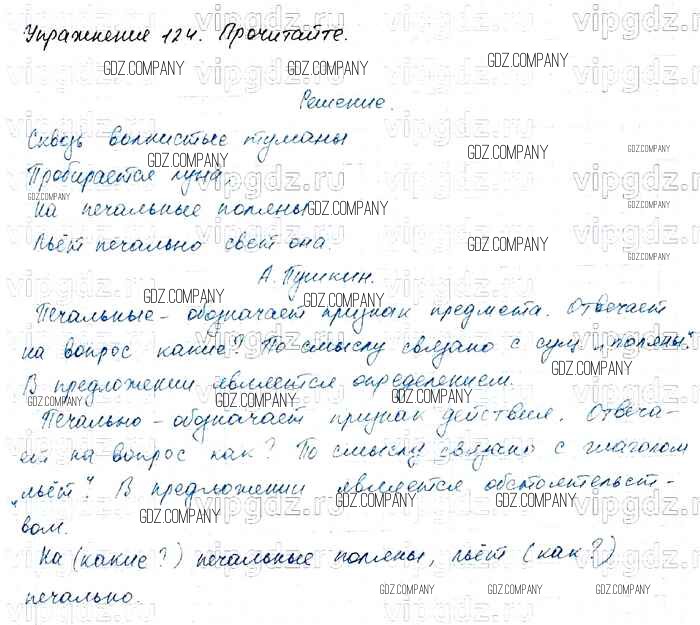 Упражнение 124. Прочитайте.
Решение.
Сквозь волнистые туманы
Пробирается луна,
На печальные поляны
Льёт печально свет она.
А. Пушкин.
Печальные – обозначает признак предмета. Отвечает
на вопрос какие? По смыслу связано с сущ. "поляны".
В предложении является определением.
Печально – обозначает признак действия. Отвеча-
ет на вопрос как? По смыслу связано с глаголом
"льёт". В предложении является обстоятельст-
вом.
На (какие?) печальные поляны, льёт (как?)
печально.